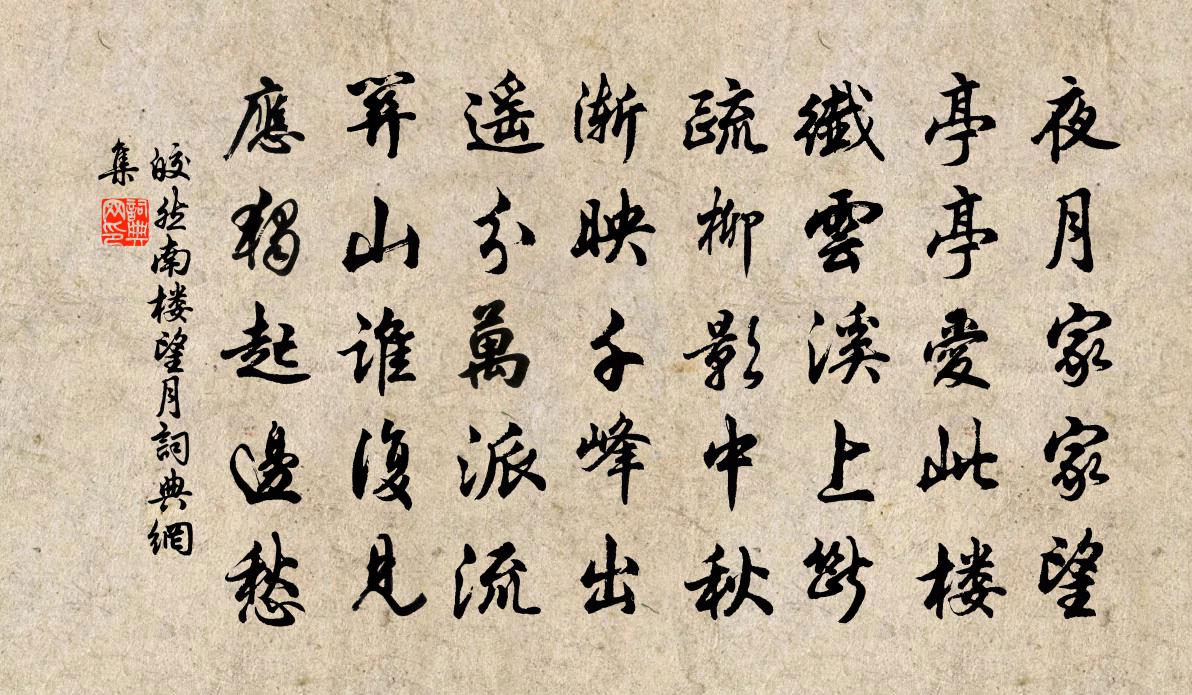 夜月家家望
亭亭愛此楼
纖雲溪上斷
疏柳影中秋
渐映千峰出
遥分萬派流
關山誰復見
應獨起邊愁
皎然南楼望月詞典網
集
詞典
网印